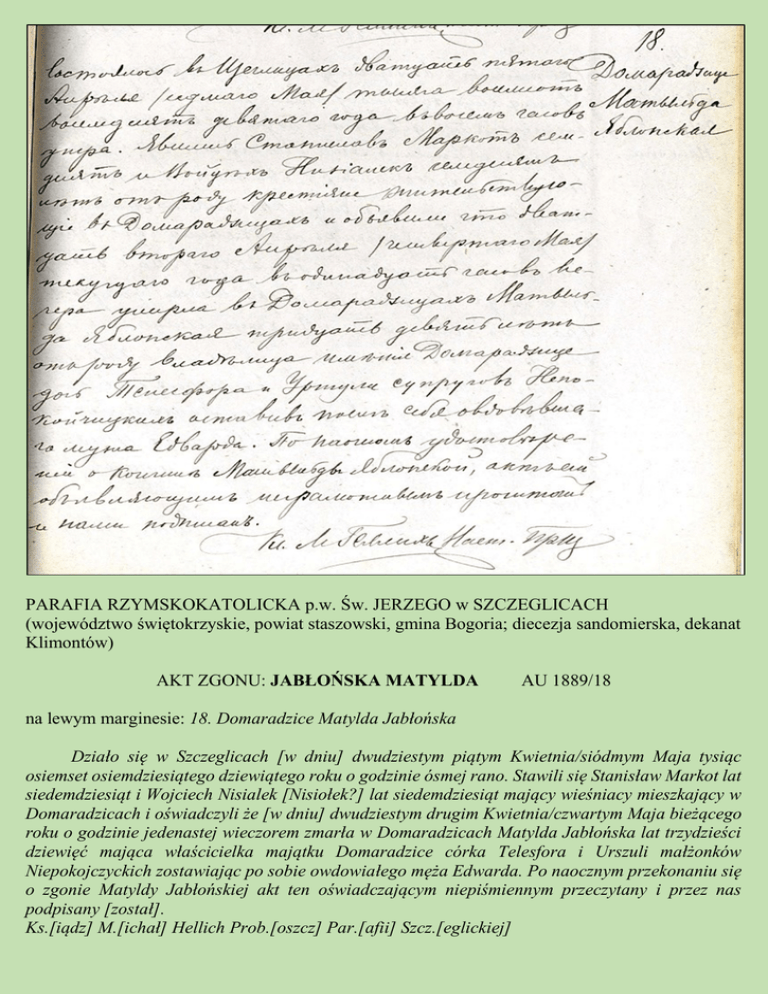 18.
Состоялось въ Щеглицахъ двадцать пятаго
Домарадзице
Апрѣля /седмаго Мая/ тысяча восемьсотъ
Матыльда
восемдесятъ девятаго года въ восемь часовъ
Яблонская
утра. Явились Станиславъ Маркотъ сем-
десятъ и Войцѣхъ Нисіалекъ семдесятъ
лѣтъ отъ роду крестяне жительствую-
щіе въ Домарадзицахъ и объявили что двад-
цать втораго Апрѣля /четвертаго Мая/
текущаго года въ одинадцать часовъ ве-
чера умерла въ Домарадзицахъ Матыль-
да Яблонская тридцать девять лѣтъ
отъ роду владѣлица имѣнія Домарадзице
дочь Телесфора и Уршули супруговъ Непо-
койчицкихъ оставивъ послѣ себя овдовѣвша-
го мужа Едварда. По наочномъ удостовѣре-
ніи о кончинѣ Матыльды Яблонской, актъ сей
объявляющимъ неграмотнымъ прочитанъ
и нами подписанъ.
Кс. М Геллихъ Наст. Прщ
PARAFIA RZYMSKOKATOLICKA p.w. Św. JERZEGO w SZCZEGLICACH
(województwo świętokrzyskie, powiat staszowski, gmina Bogoria; diecezja sandomierska, dekanat
Klimontów)
AKT ZGONU: JABŁOŃSKA MATYLDA AU 1889/18
na lewym marginesie: 18. Domaradzice Matylda Jabłońska
Działo się w Szczeglicach [w dniu] dwudziestym piątym Kwietnia/siódmym Maja tysiąc
osiemset osiemdziesiątego dziewiątego roku o godzinie ósmej rano. Stawili się Stanisław Markot lat
siedemdziesiąt i Wojciech Nisialek [Nisiołek?] lat siedemdziesiąt mający wieśniacy mieszkający w
Domaradzicach i oświadczyli że [w dniu] dwudziestym drugim Kwietnia/czwartym Maja bieżącego
roku o godzinie jedenastej wieczorem zmarła w Domaradzicach Matylda Jabłońska lat trzydzieści
dziewięć mająca właścicielka majątku Domaradzice córka Telesfora i Urszuli małżonków
Niepokojczyckich zostawiając po sobie owdowiałego męża Edwarda. Po naocznym przekonaniu się
o zgonie Matyldy Jabłońskiej akt ten oświadczającym niepiśmiennym przeczytany i przez nas
podpisany [został].
Ks.[iądz] M.[ichał] Hellich Prob.[oszcz] Par.[afii] Szcz.[eglickiej]